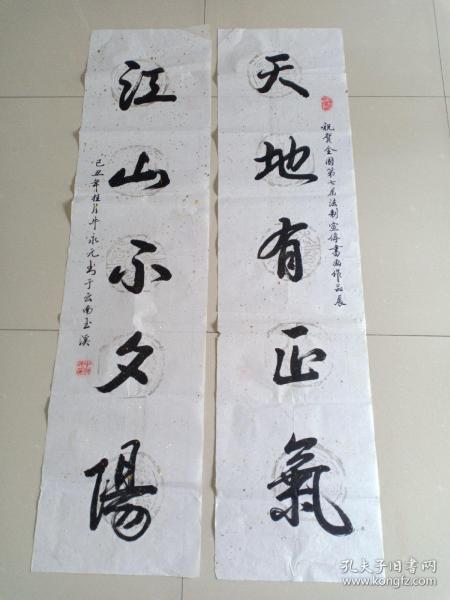 天地有正氣
祝贺全国第七届法制宣传書画作品展
江山不夕陽
己丑年桂月牛永元书于云南玉溪
孔夫子旧书网
www.kongfz.com